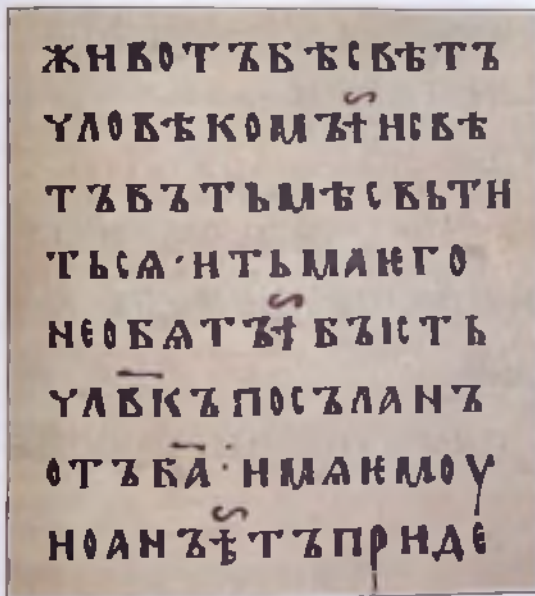 ЖИВОТЪБѢСВѢТЪ
ЧЛОВѢКОМЪ⁘ИСВѢ
ТЪВЪТЬМѢСВЬТИ
ТЬСѦ·ИТЬМАѤГО
НЕОБѦТЪ⁘БЪІСТЬ
ЧЛВ҃КЪПОСЪЛАНЪ
ОТЪБ҃А⁚ИМѦѤМОУ
ИОАНЪ⁘ТЪПРИДЕ